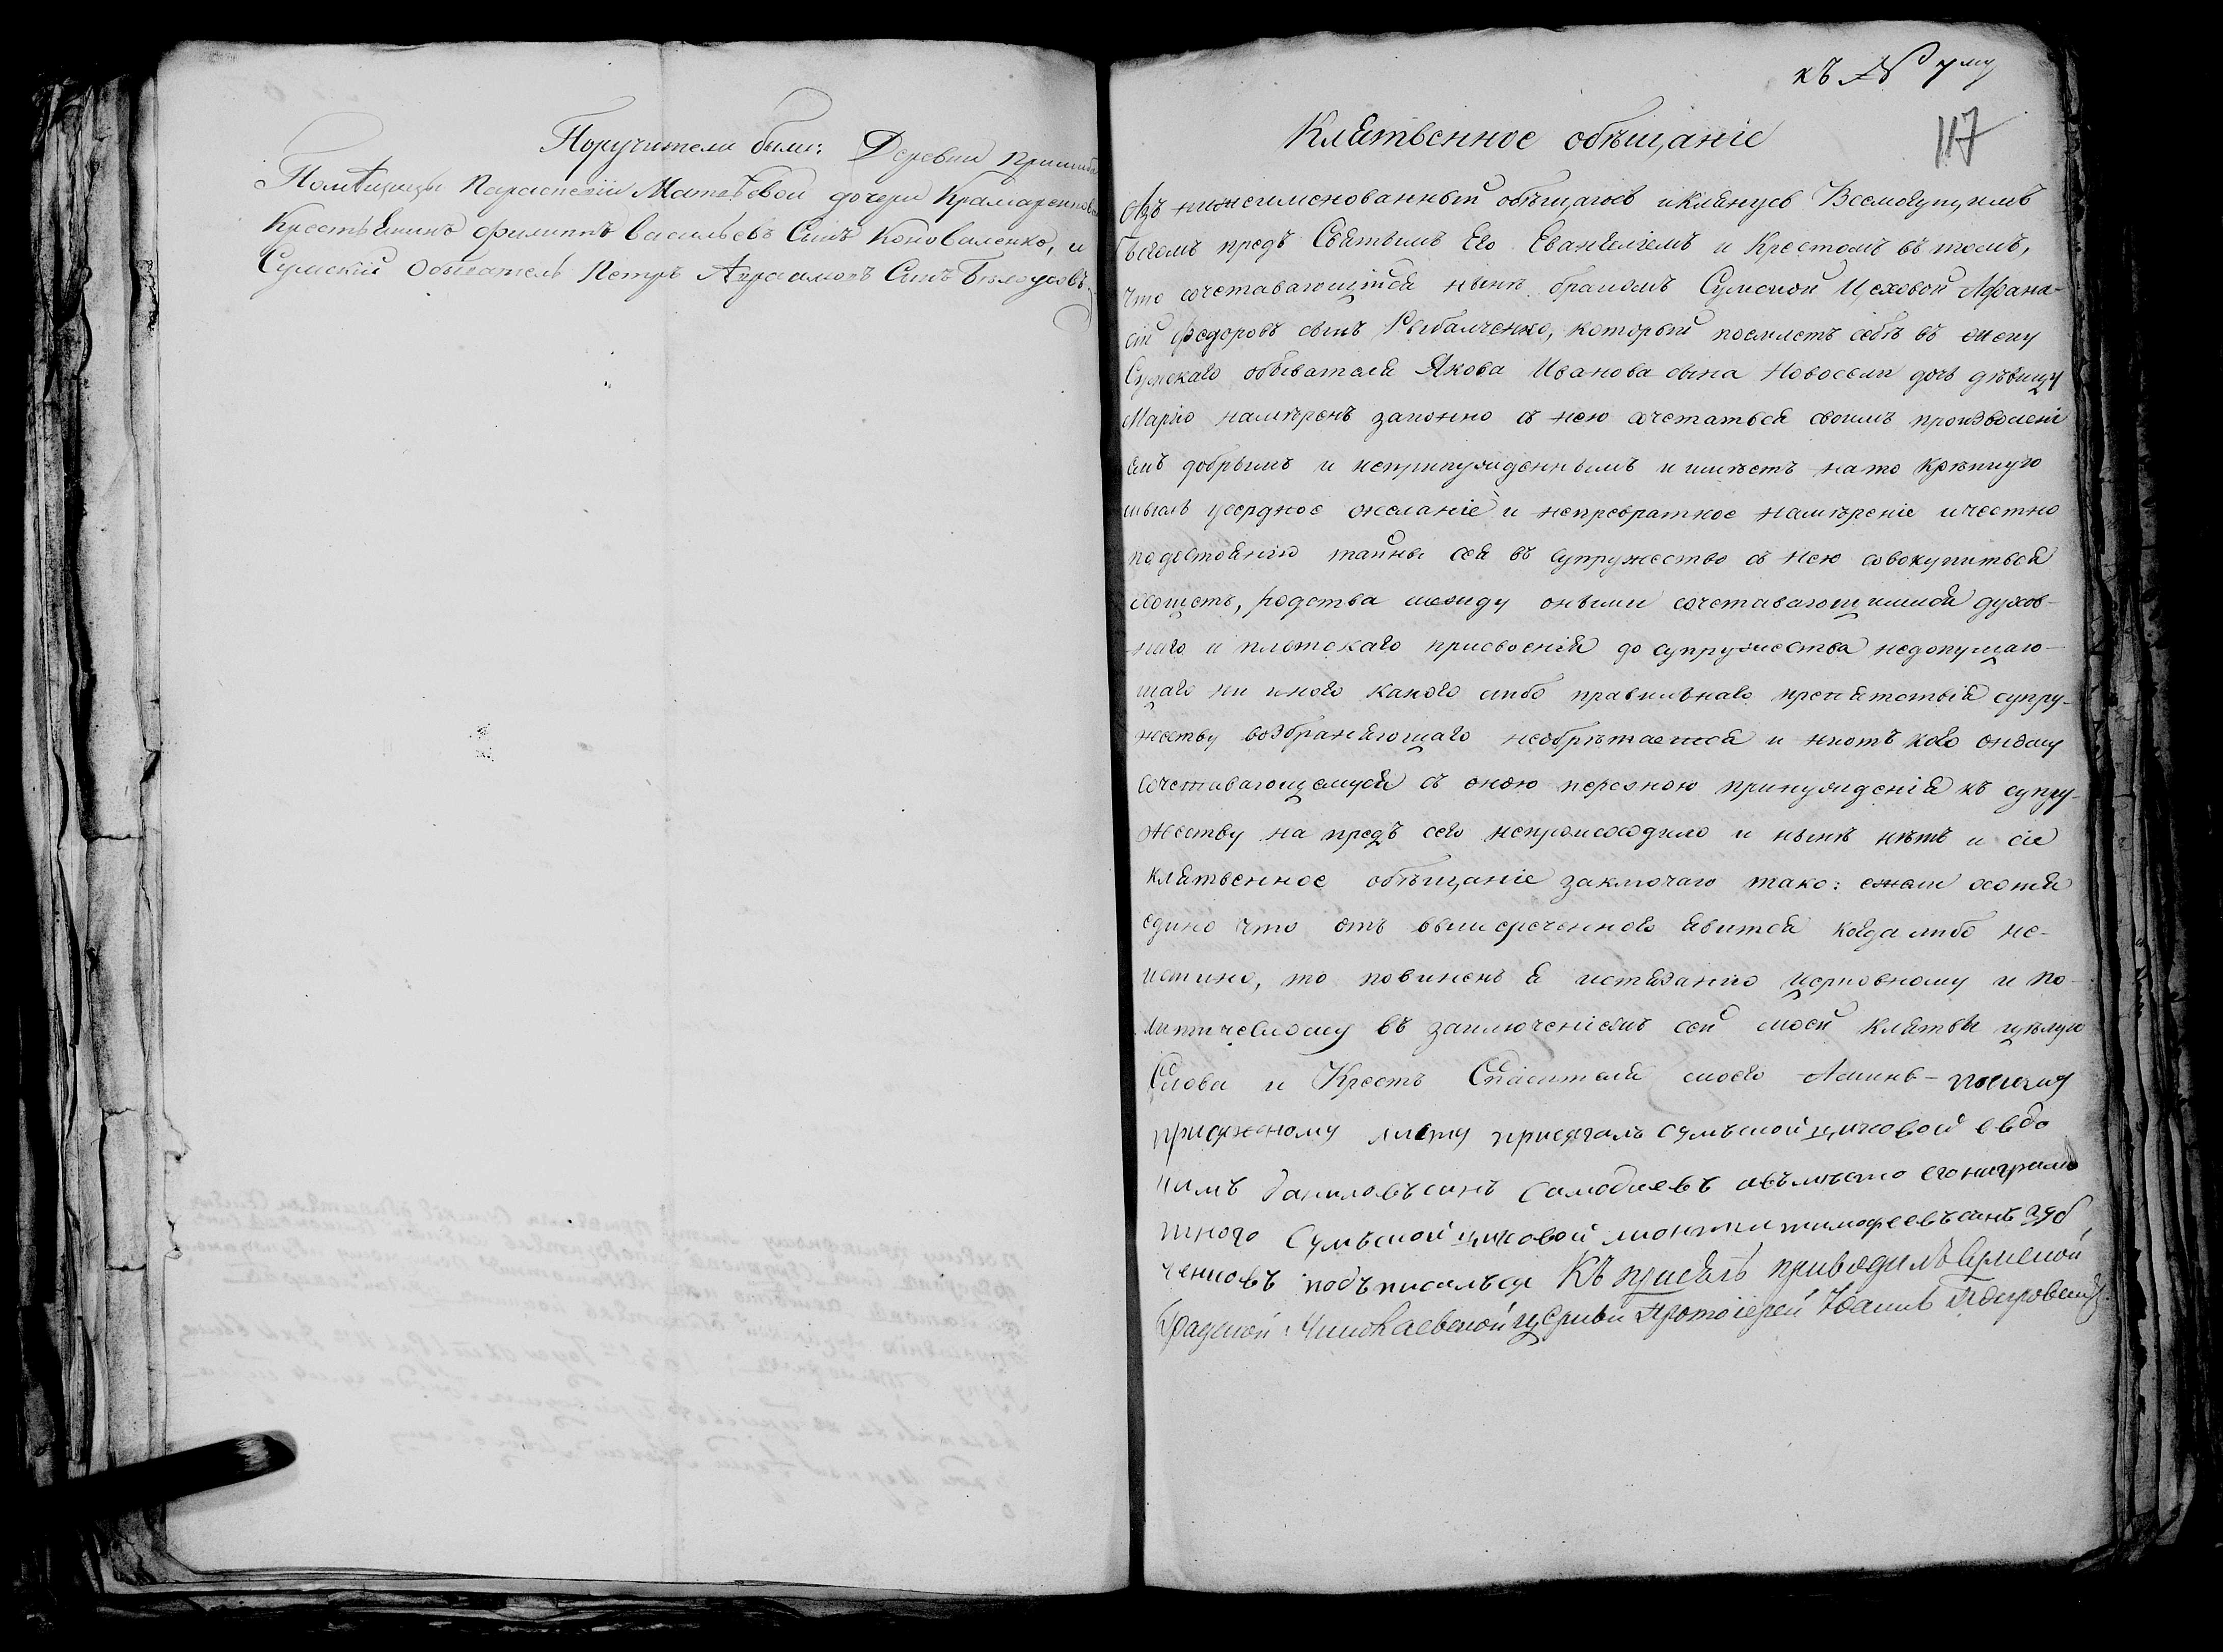 Поручители были: Деревни
Помѣщицы Параскевіи Матвѣевой дочери Крамаренковой
Крестьянинъ Филиппъ Васильевъ Сынъ Коноваленко, и
Сумскій Обыватель Петръ Авраамовъ Сынъ
къ № 7му
117
Клятвенное обѣщаніе
Азъ нижеименованный обѣщаюсь и клянусь Всемогущимъ
Богомъ предъ Святымъ Его Евангеліемъ и Крестомъ въ томъ,
что сочетавающійся нынѣ бракомъ Сумской Цеховой Афана-
сій Федоровъ сынъ Рыбалченко, который поемлетъ себѣ въ жену
Сумскаго обывателя Якова Иванова сына Новосели дочь дѣвицу
Марію намѣренъ законно съ нею сочетаться своимъ произволені
емъ добрымъ и непринужденнымъ и имѣетъ на то крѣпкую
мысль усердное желаніе и непревратное намѣреніе и честно
по достоянію тайны сея въ супружество съ нею совокупиться
хощетъ, родства между оными сочетавающимися духов-
наго и плотскаго присвоенія до супружества недопущаю-
щаго ни иного какого либо правильнаго препятствія супру-
жеству возбраняющаго необрѣтается и ни отъ кого оному
сочетавающемуся съ оною персоною принужденія къ супру-
жеству на предъ сего непроисходило и нынѣ нѣтъ и сіе
клятвенное обѣщаніе заключаю тако: ежели хотя
едино что отъ вышереченного явится когда либо не-
истино, то повиненъ я истязанію церковному и по-
литическому въ заключеніемъ сей моей клятвы цѣлую
Слова и Крестъ Спасителя моего Аминь – посиму
присяжному листу присягалъ сумъской цеховой евдо
кимъ даниловъ синъ Самодаевъ авъмѣсто его ниграмо
тного Сумъской цеховой тимофеевъ синъ
ченковъ подъписалъся Къ присягѣ приводилъ Сумской
Градской Николаевской церкви Протоіерей Іоаннъ